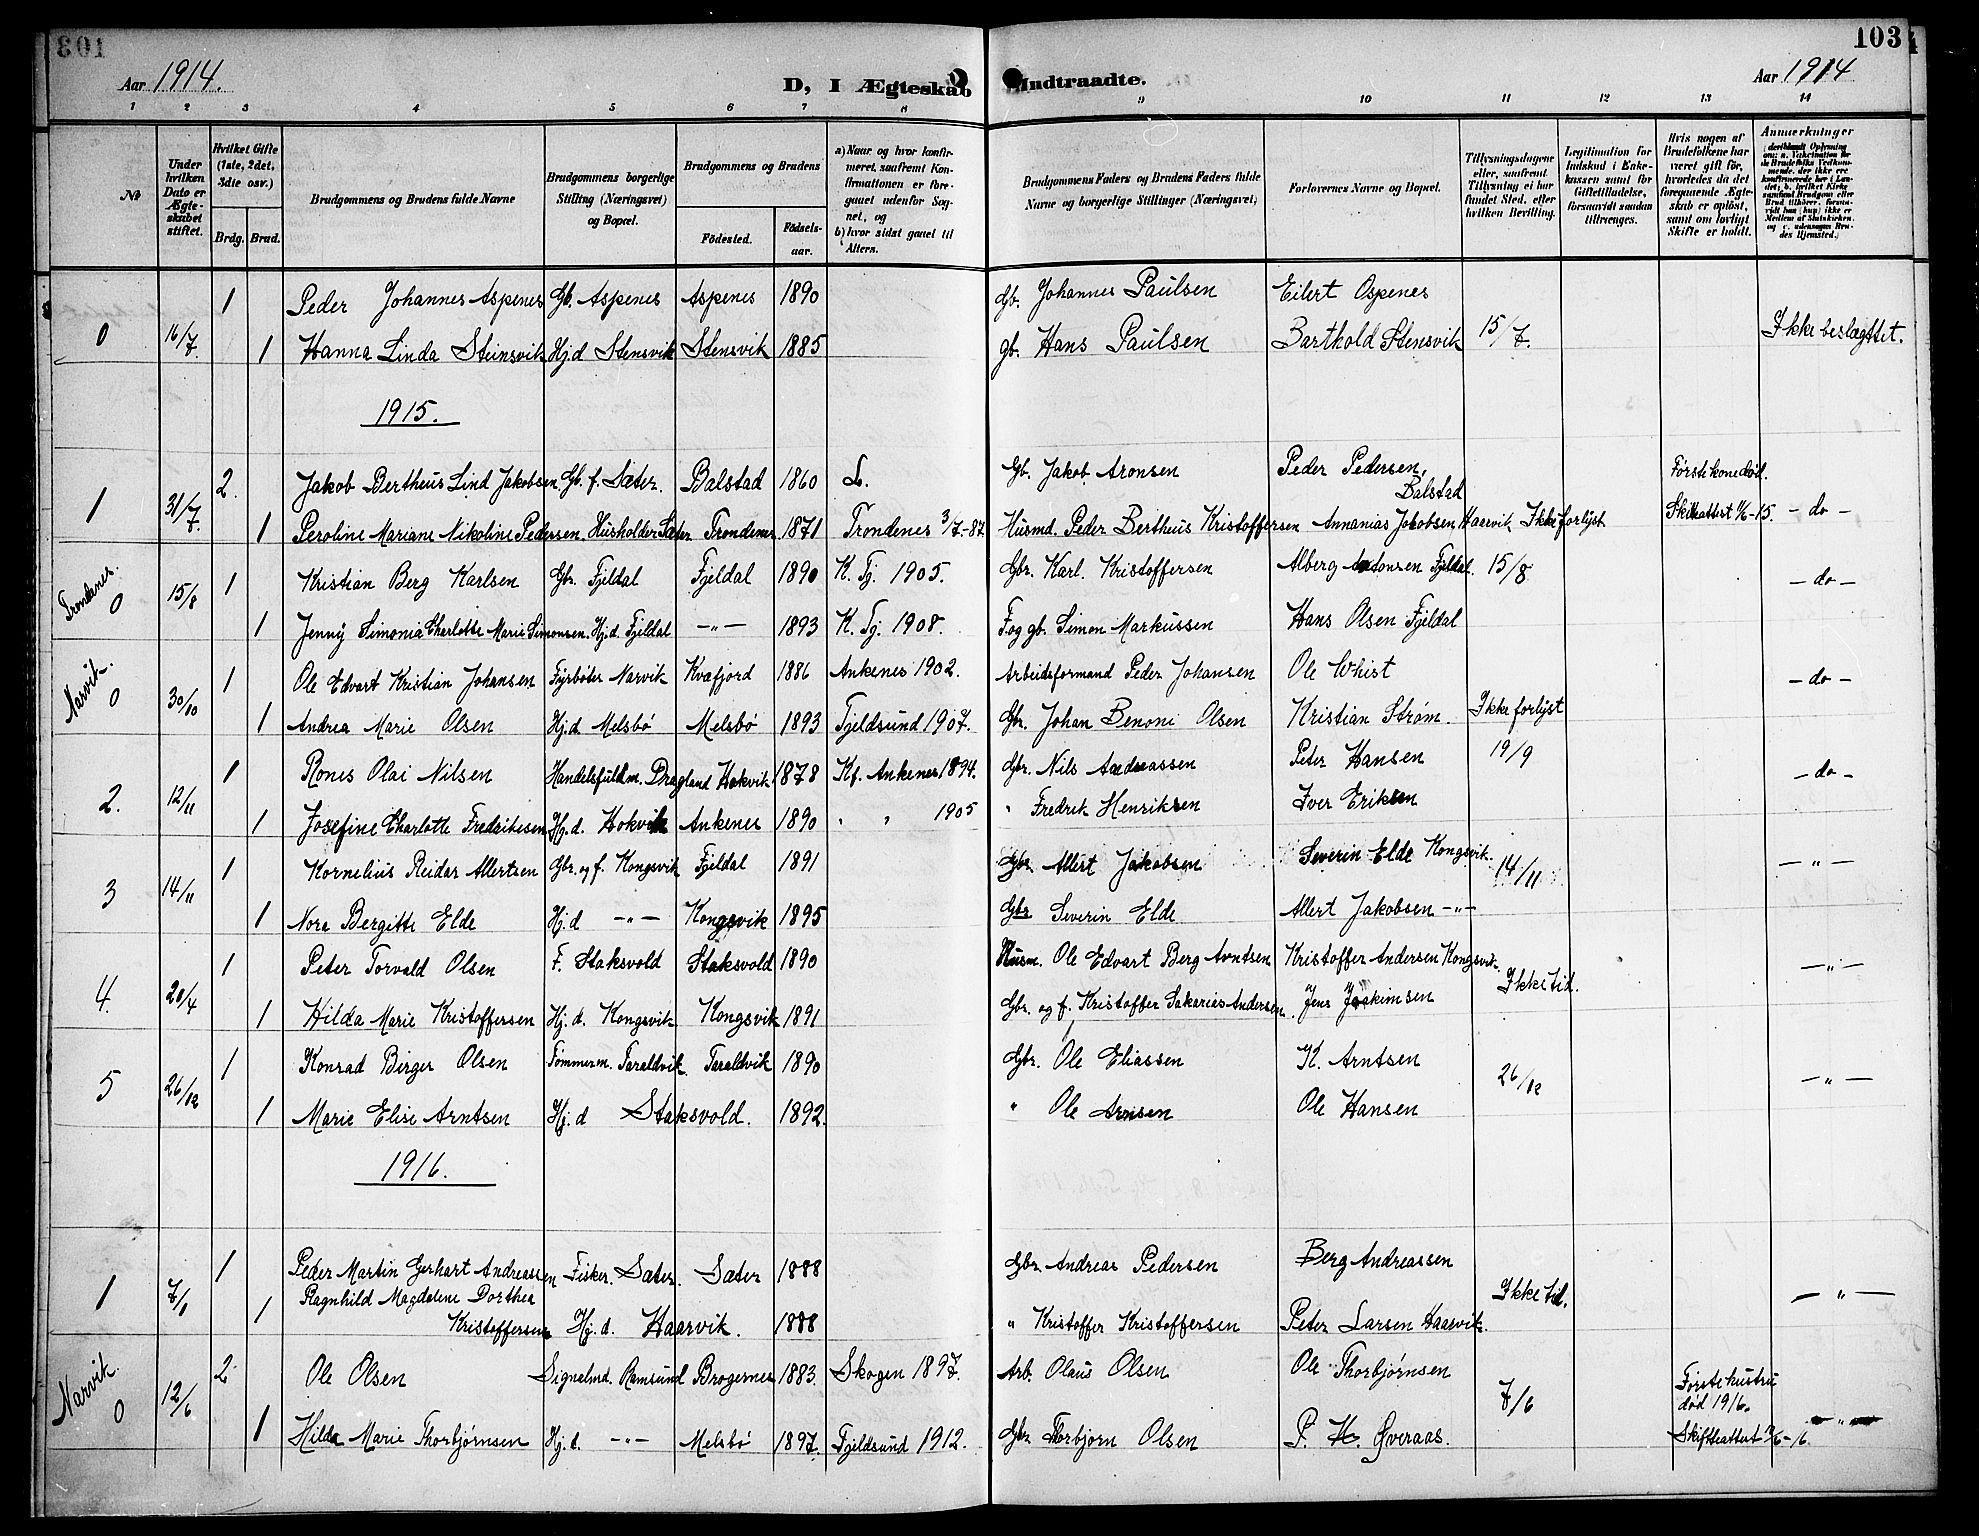 103
Aar 1914.
D, I Ægteskab Indtraadte.
Aar 1914
1 2 3 4 5 6 7 8 9 10 11 12 13 14
№
Under hvilken Dato er Ægteskabet stiftet.
Hvilket Gifte (1ste, 2det, 3die osv.)
Brdg. Brud.
Brudgommens og Brudens fulde Navne
Brudgommens borgerlige Stilling (Næringsvei) og Bopæl.
Brudgommens og Brudens
Fødested. Fødselsaar.
a) Naar og hvor konfirmeret, saafremt Konfirmationen er foregaaet udenfor Sognet, og
b) hvor sidst gaaet til Alters.
Brudgommens Faders og Brudens Faders fulde Navne og borgerlige Stillinger (Næringsvei)
Forlovernes Navne og Bopæl.
Tillysningsdagene eller, saafremt Tillysning ei har fundet Sted, efter hvilken Bevilling.
Legitimation for Indskud i Enkekassen samt for Giftetilladelse, forsaavidt saadan tiltrænges.
Hvis nogen af Brudefolkene har været gift før, hvorledes da det foregaaende Ægteskab er opløst, samt om lovligt Skifte er holdt.
Anmerkninger
0 16/7. 1 Peder Johannes Aspenes Gb. Aspenes Aspenes 1890 Gb. Johannes Paulsen Eilert Ospenes
1 Hanna Linda Steinsvik Hj.d Stensvik Stensvik 1885 gb. Hans Paulsen Barthold Stensvik 15/7. Ikke beslægttet.
1915.
1 31/7. 2. Jakob Bertheus Lind Jakobsen Gb. f. Sæter. Balstad 1860 L. Gb. Jakob Aronsen Peder Pedersen, Balstad Første kone død.
1 Peroline Mariane Nikoline Pedersen. Husholder Sæter Trondenes 1871 Trondenes 3/7-87. Husmd. Peder Bertheus Kristoffersen Annanias Jakobsen Haarvik Ikke forlyst -15. - do -
Trondenes. 0 15/8 1 Kristian Berg Karlsen Gbr. Fjeldal Fjeldal 1890 K. Fj. 1905. Gbr. Karl. Kristoffersen Alberg Antonsen Fjeldal. 15/8 - do -
1 Jenny Simonia Charlotte Marie Simonsen. Hj.d. Fjeldal -"- 1893 K. Fj. 1908. F. og gb. Simon Markussen Hans Olsen Fjeldal
Narvik. 0 30/10 1 Ole Edvart Kristian Johansen Fyrbøter Narvik Kvæfjord 1886 Ankenes 1902. Arbeidsformand Peder Johansen Ole Whist - do -
1 Andrea Marie Olsen Hj.d. Melsbø Melsbø 1893 Fjeldsund 1907. Gbr. Johan Benoni Olsen Kristian Strøm. Ikke forlyst
2. 12/11 1 Rones Olai Nilsen Handelsfuldm. Dragland Hokvik 1878 Kf. Ankenes 1894. Gbr. Nils Andreassen Peter Hansen 19/9 - do -
1 Josefine Charlotte Fredriksen Hj.d. Hokvik Ankenes 1890 " " 1905 " Fredrik Henriksen Iver Eriksen
3 14/11 1 Kornelius Reidar Allertsen Gbr. og f. Kongsvik Fjeldal 1891 Gbr. Allert Jakobsen Severin Elde Kongsvik. 14/11 -"-
1 Nora Bergitte Elde Hj.d -"- Kongsvik 1895 Gbr Severin Elde Allert Jakobsen -"-
4. 20/4 1 Peter Torvald Olsen F. Staksvold Staksvold 1890 Husm. Ole Edvart Berg Arntsen Kristoffer Andersen Kongsvik. Ikke tid. -"-
1 Hilda Marie Kristoffersen Hj.d. Kongsvik Kongsvik 1891 Gbr. og f. Kristoffer Sakarias Andersen. Jens Joakimsen
5 26/12 1 Konrad Birger Olsen Tømmerm. Taraldvik Taraldvik 1890 Gbr. Ole Eliassen K. Arntsen 26/12 -"-
1 Marie Elise Arntsen Hj.d Staksvold. 1892. " Ole Arnsen Ole Hansen
1916.
1 7/1 1 Peder Martin Gerhart Andreassen Fisker. Sæter. Sæter 1888 Gbr. Andreas Pedersen Berg Andreassen Ikke tid. -"-
1 Ragnhild Magdalene Dorthea Kristoffersen Hj.d. Haarvik. 1888 " Kristoffer Kristoffersen Peter Larsen Haarvik.
Narvik. 0 12/6 2 Ole Olsen Signalmd. Ramsund Brogernes 1883. Skogen 1897. Arb. Olaus Olsen Ole Thorbjørnsen 7/6 Første hustru død 1916.
1 Hilda Marie Thorbjørnsen Hj.d. -"- Melsbø 1897. Fjeldsund 1912. Gbr. Thorbjørn Olsen P. K. Øveraas. Skifteattest -16. -"-